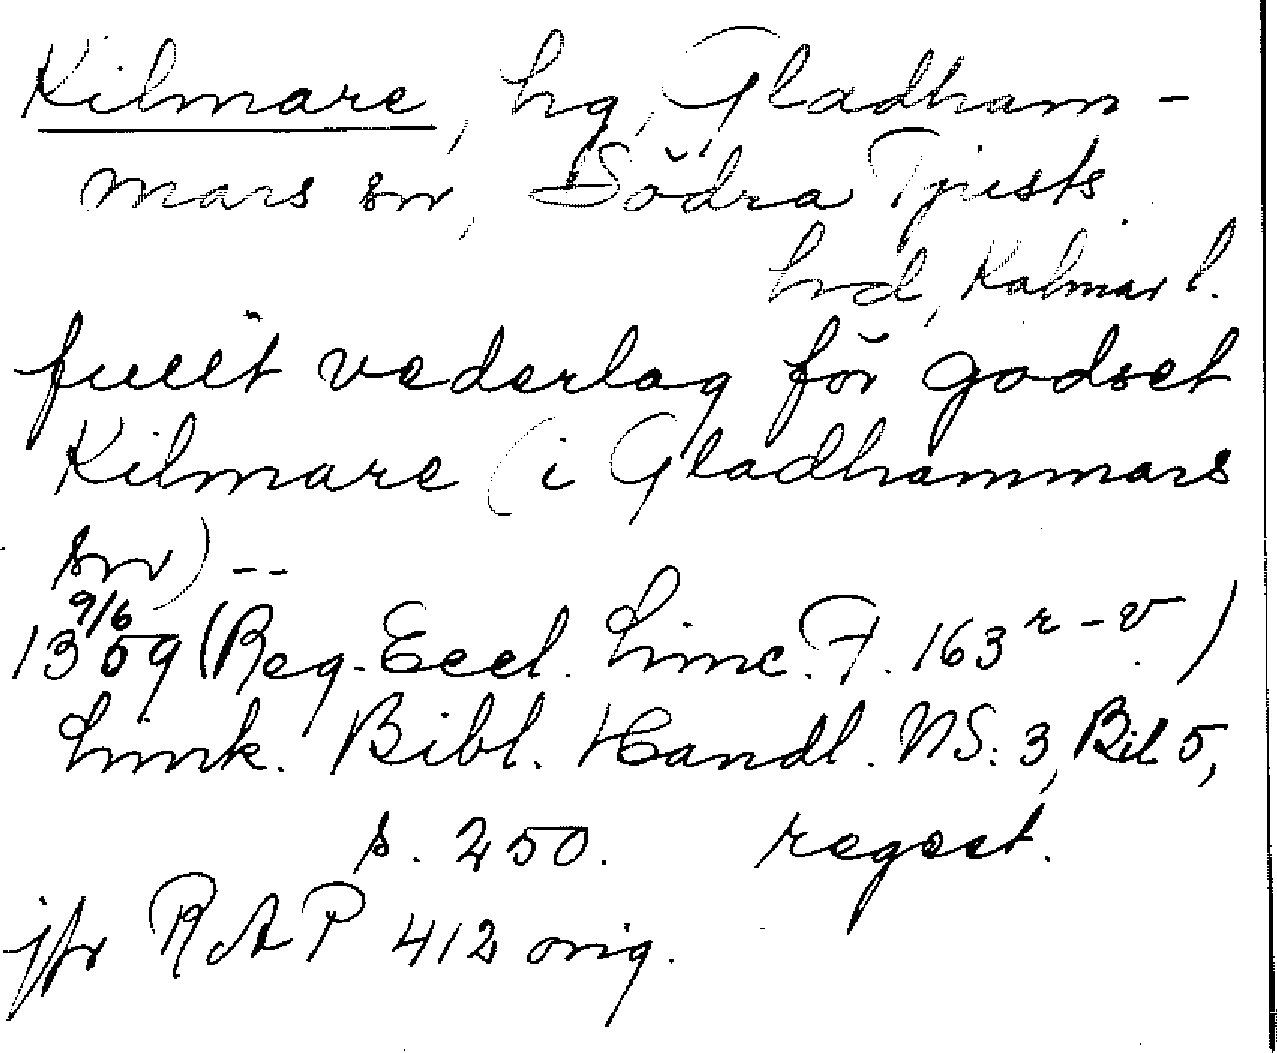 Kilmare, hg, Gladham-
mars sn, Södra Tjusts
hd, Kalmar l.
fullt vederlag för godset
Kilmare (i Gladhammars
sn) --
9/6
1359 (Reg. Eccl. Linc. F. 163 r-v.)
Link. Bibl. Handl. NS: 3, Bil 5,
s. 250. regest.
jfr RAP 412 orig.